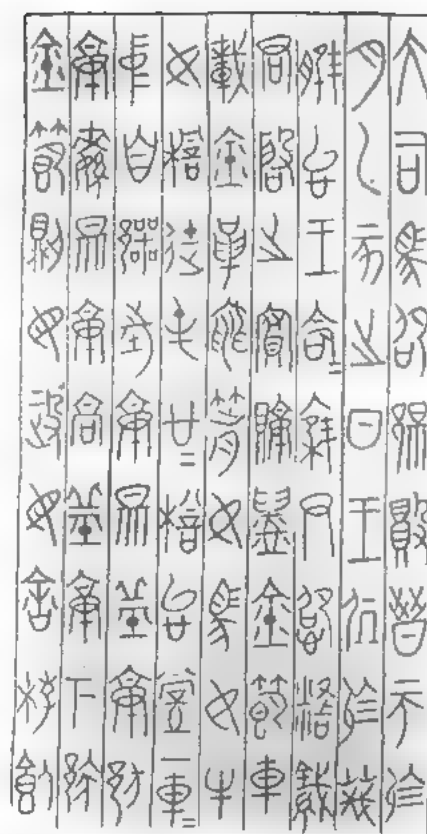 大司馬卲陽敗晉帀於
月乙亥之日王凥於茂
脽台王命=集尹
君啟之府賡鑄金節車
載金革黽箭女馬女牛
女檐徒屯廿=檐台堂一車=
中自鄂往庚昜丘庚邡
庚繁昜庚高丘庚下蔡
金節則毋政毋舍桴飤